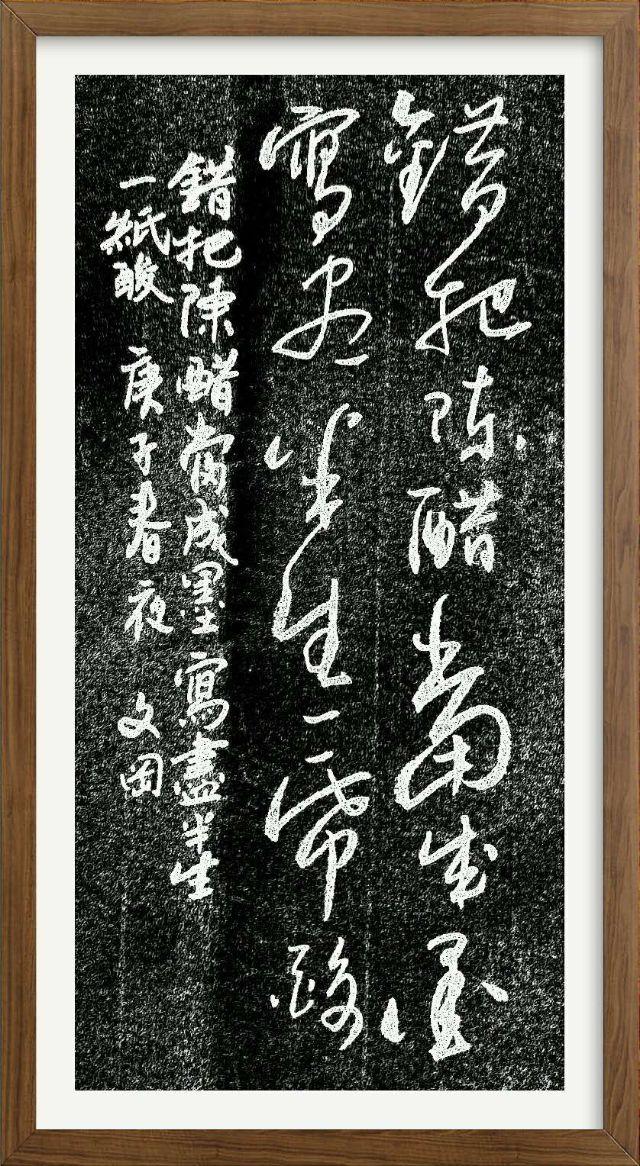 錯把陳醋當成墨
寫盡半生一紙酸
錯把陳醋當成墨寫盡半生
一紙酸 庚子春夜 文田